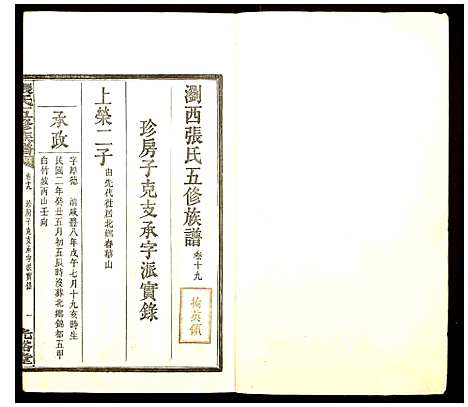 瀏西張氏五修族譜 卷十九
珍房子克支承字派實錄
上榮二子 由先代徙居北鄉春華山
承政
字厚德 清咸豐八年戊午七月十九亥時生
民國二年癸丑五月初五辰時沒葬北鄉錦都五甲
白竹坡丙山壬向
張氏五修族譜 卷十九 珍房子克支承字派實錄 一